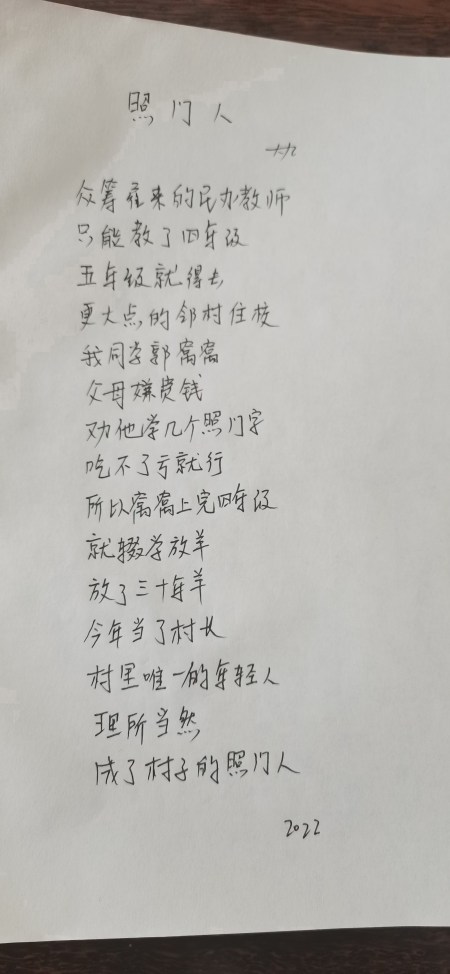 照门人
众筹雇来的民办教师
只能教了四年级
五年级就得去
更大点的邻村住校
我同学郭窝窝
父母嫌费钱
劝他学几个照门字
吃不了亏就行
所以窝窝上完四年级
就辍学放羊
放了三十年羊
今年当了村长
村里唯一的年轻人
理所当然
成了村子的照门人
2022